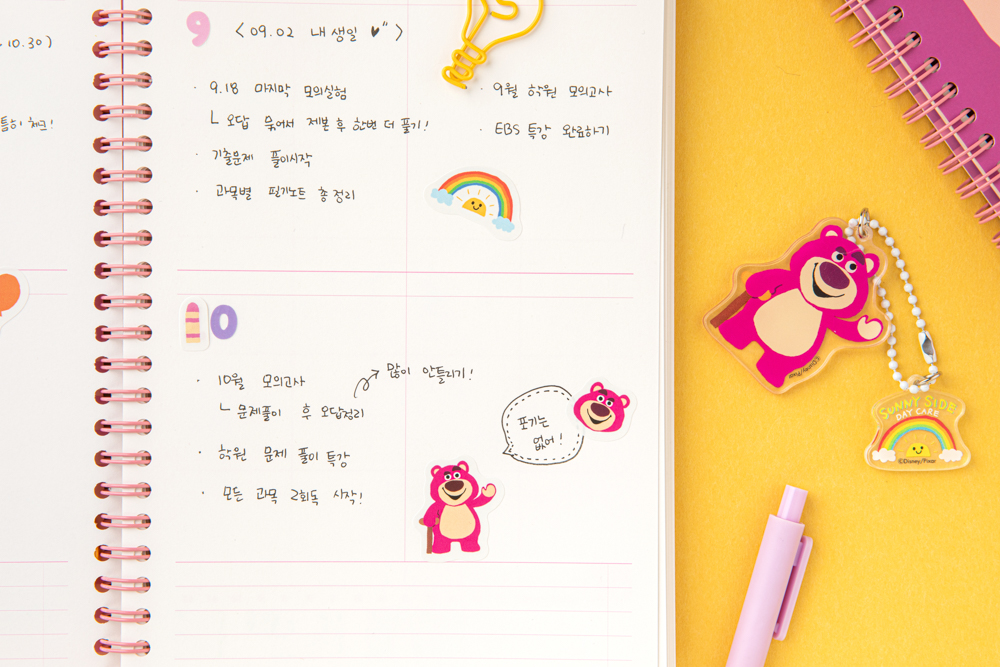 .10.30)
체크!
9 <09.02 내 생일 ♥">
· 9.18 마지막 모의실험
ㄴ 오답 묶어서 제본 후 한번 더 풀기!
· 기출문제 풀이시작
· 과목별 필기노트 총정리
· 9월 학원 모의고사
· EBS 특강 완료하기
10
· 10월 모의고사
많이 안틀리기!
ㄴ 문제풀이 후 오답정리
· 학원 문제 풀이 특강
· 모든 과목 2회독 시작!
포기는
없어!
©Disney/Pixar
SUNNY SIDE
DAY CARE
©Disney/Pixar